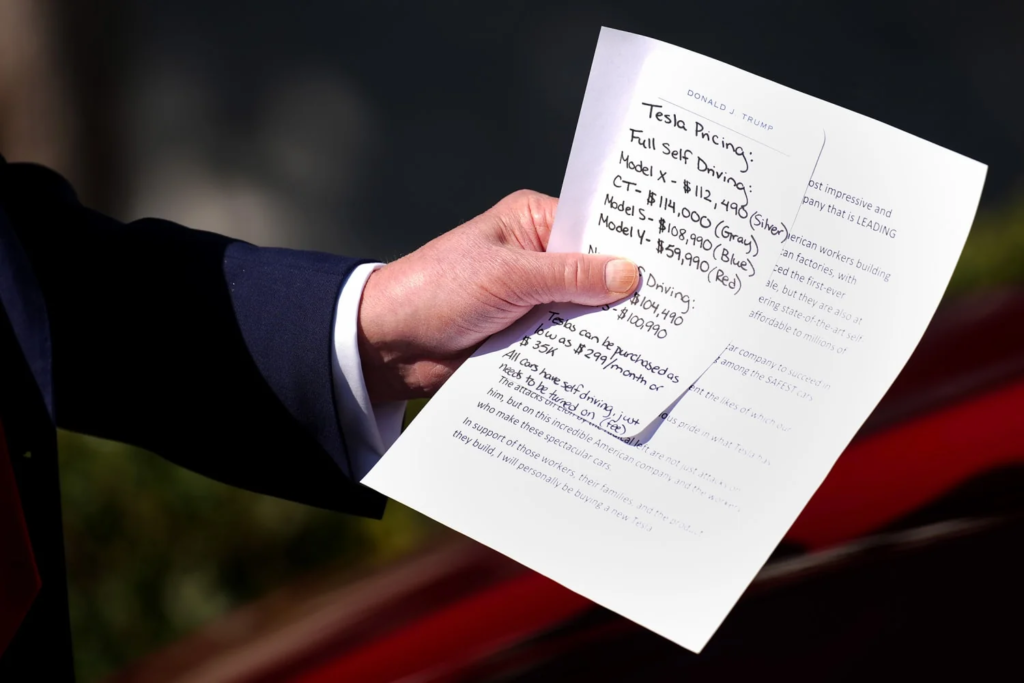 DONALD J. TRUMP
Tesla Pricing:
Full Self Driving:
Model X - $112,490 (Silver)
CT- $114,000 (Gray)
Model S- $108,990 (Blue)
Model Y- $59,990 (Red)
Driving:
$104,490
- $100,990
Teslas can be purchased as
low as $299/month or
$35K
All cars have self driving, just
needs to be turned on (fee)
ost impressive and
pany that is LEADING
erican workers building
can factories, with
ced the first-ever
ale, but they are also at
ering state-of-the-art self
affordable to millions of
car company to succeed in
among the SAFEST cars
ent the likes of which our
us pride in what Tesla has
The attacks left are not just attacks on
him, but on this incredible American company and the workers
who make these spectacular cars.
In support of those workers, their families, and the product
they build, I will personally be buying a new Tesla